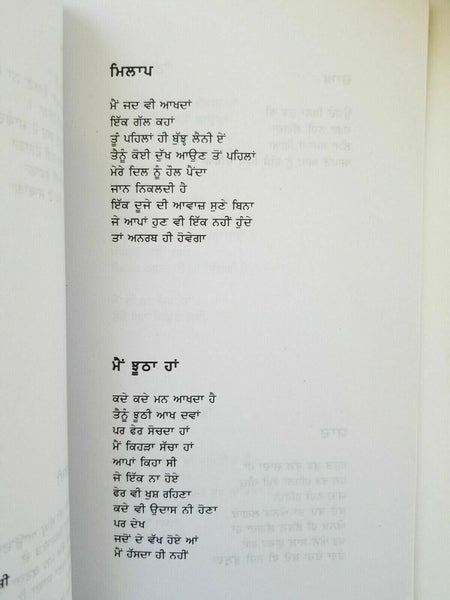 ਮਿਲਾਪ
ਮੈਂ ਜਦ ਵੀ ਆਖਦਾਂ
ਇੱਕ ਗੱਲ ਕਹਾਂ
ਤੂੰ ਪਹਿਲਾਂ ਹੀ ਬੁੱਝ ਲੈਨੀ ਏਂ
ਤੈਨੂੰ ਕੋਈ ਦੁੱਖ ਆਉਣ ਤੋਂ ਪਹਿਲਾਂ
ਮੇਰੇ ਦਿਲ ਨੂੰ ਹੌਲ ਪੈਂਦਾ
ਜਾਨ ਨਿਕਲਦੀ ਹੈ
ਇਕ ਦੂਜੇ ਦੀ ਆਵਾਜ਼ ਸੁਣੇ ਬਿਨਾ
ਜੇ ਆਪਾਂ ਹੁਣ ਵੀ ਇੱਕ ਨਹੀਂ ਹੁੰਦੇ
ਤਾਂ ਅਨਰਥ ਹੀ ਹੋਵੇਗਾ
ਮੈਂ ਝੂਠਾ ਹਾਂ
ਕਦੇ ਕਦੇ ਮਨ ਆਖਦਾ ਹੈ
ਤੈਨੂੰ ਝੂਠੀ ਆਖ ਦਵਾਂ
ਪਰ ਫੇਰ ਸੋਚਦਾ ਹਾਂ
ਮੈਂ ਕਿਹੜਾ ਸੱਚਾ ਹਾਂ
ਆਪਾਂ ਕਿਹਾ ਸੀ
ਜੇ ਇੱਕ ਨਾ ਹੋਏ
ਫੇਰ ਵੀ ਖੁਸ਼ ਰਹਿਣਾ
ਕਦੇ ਵੀ ਉਦਾਸ ਨੀ ਹੋਣਾ
ਪਰ ਦੇਖ
ਜਦੋਂ ਦੇ ਵੱਖ ਹੋਏ ਆਂ
ਮੈਂ ਹੱਸਦਾ ਹੀ ਨਹੀਂ